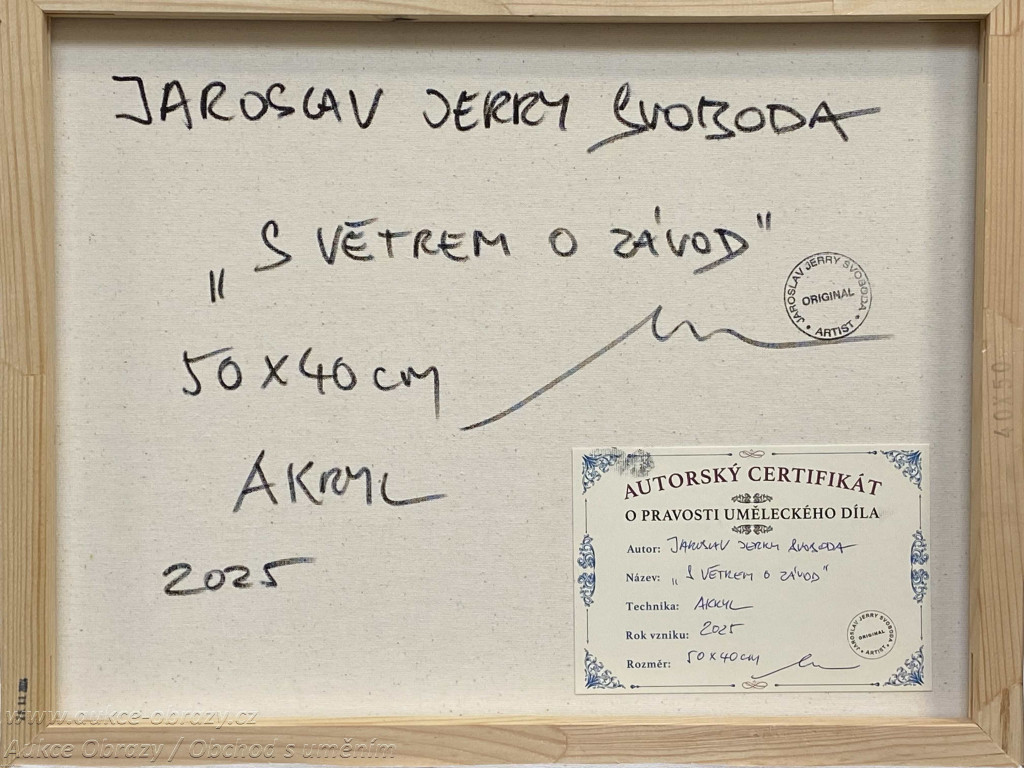 JAROSLAV JERRY SVOBODA
„S VĚTREM O ZÁVOD"
JAROSLAV JERRY SVOBODA
ORIGINAL
• ARTIST •
50 x 40 cm
40X50
AKRYL
2025
AUTORSKÝ CERTIFIKÁT
O PRAVOSTI UMĚLECKÉHO DÍLA
Autor: JAROSLAV JERRY SVOBODA
Název: „S VĚTREM O ZÁVOD"
Technika: AKRYL
Rok vzniku: 2025
Rozměr: 50 x 40 cm
JAROSLAV JERRY SVOBODA
ORIGINAL
• ARTIST •
www.aukce-obrazy.cz
Aukce Obrazy / Obchod s uměním